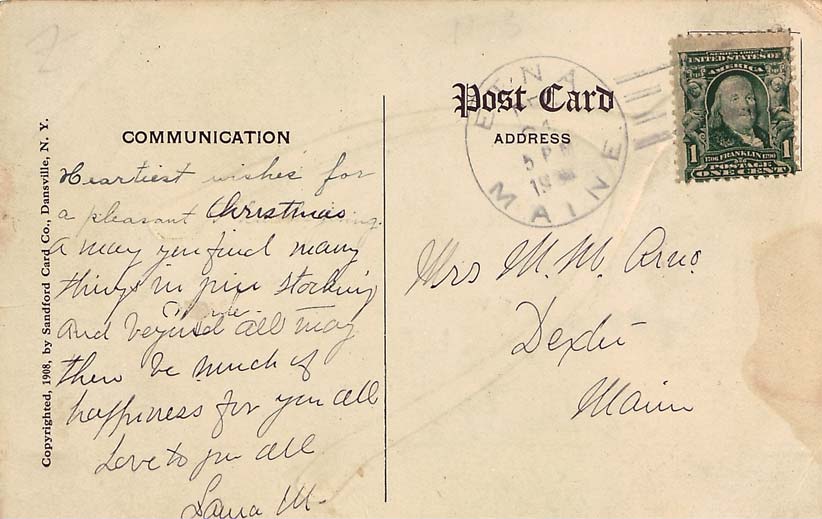 Copyrighted, 1908, by Sandford Card Co., Dansville, N. Y.
COMMUNICATION
Heartiest wishes for
a pleasant Christmas
& may you find many
things in your stocking
And beyond all may
there be much of
happiness for you all
Love to you all
Laura M.
Post Card
ADDRESS
ETNA
5 PM
19
MAINE
SERIES 1902
UNITED STATES OF
AMERICA
1 1706 FRANKLIN 1790 1
POSTAGE
ONE CENT
Mrs M. M. Arno.
Dexter
Maine